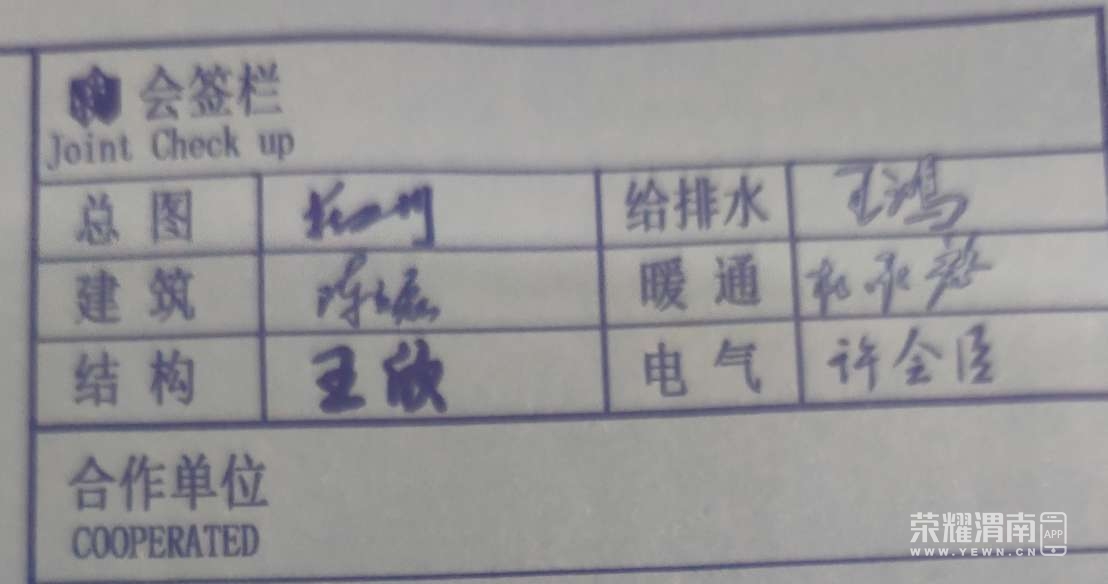 会签栏
Joint Check up
总图 给排水 王鸿
建筑 暖通
结构 王欣 电气 许全臣
合作单位
COOPERATED
荣耀渭南 APP
WWW.YEWN.CN